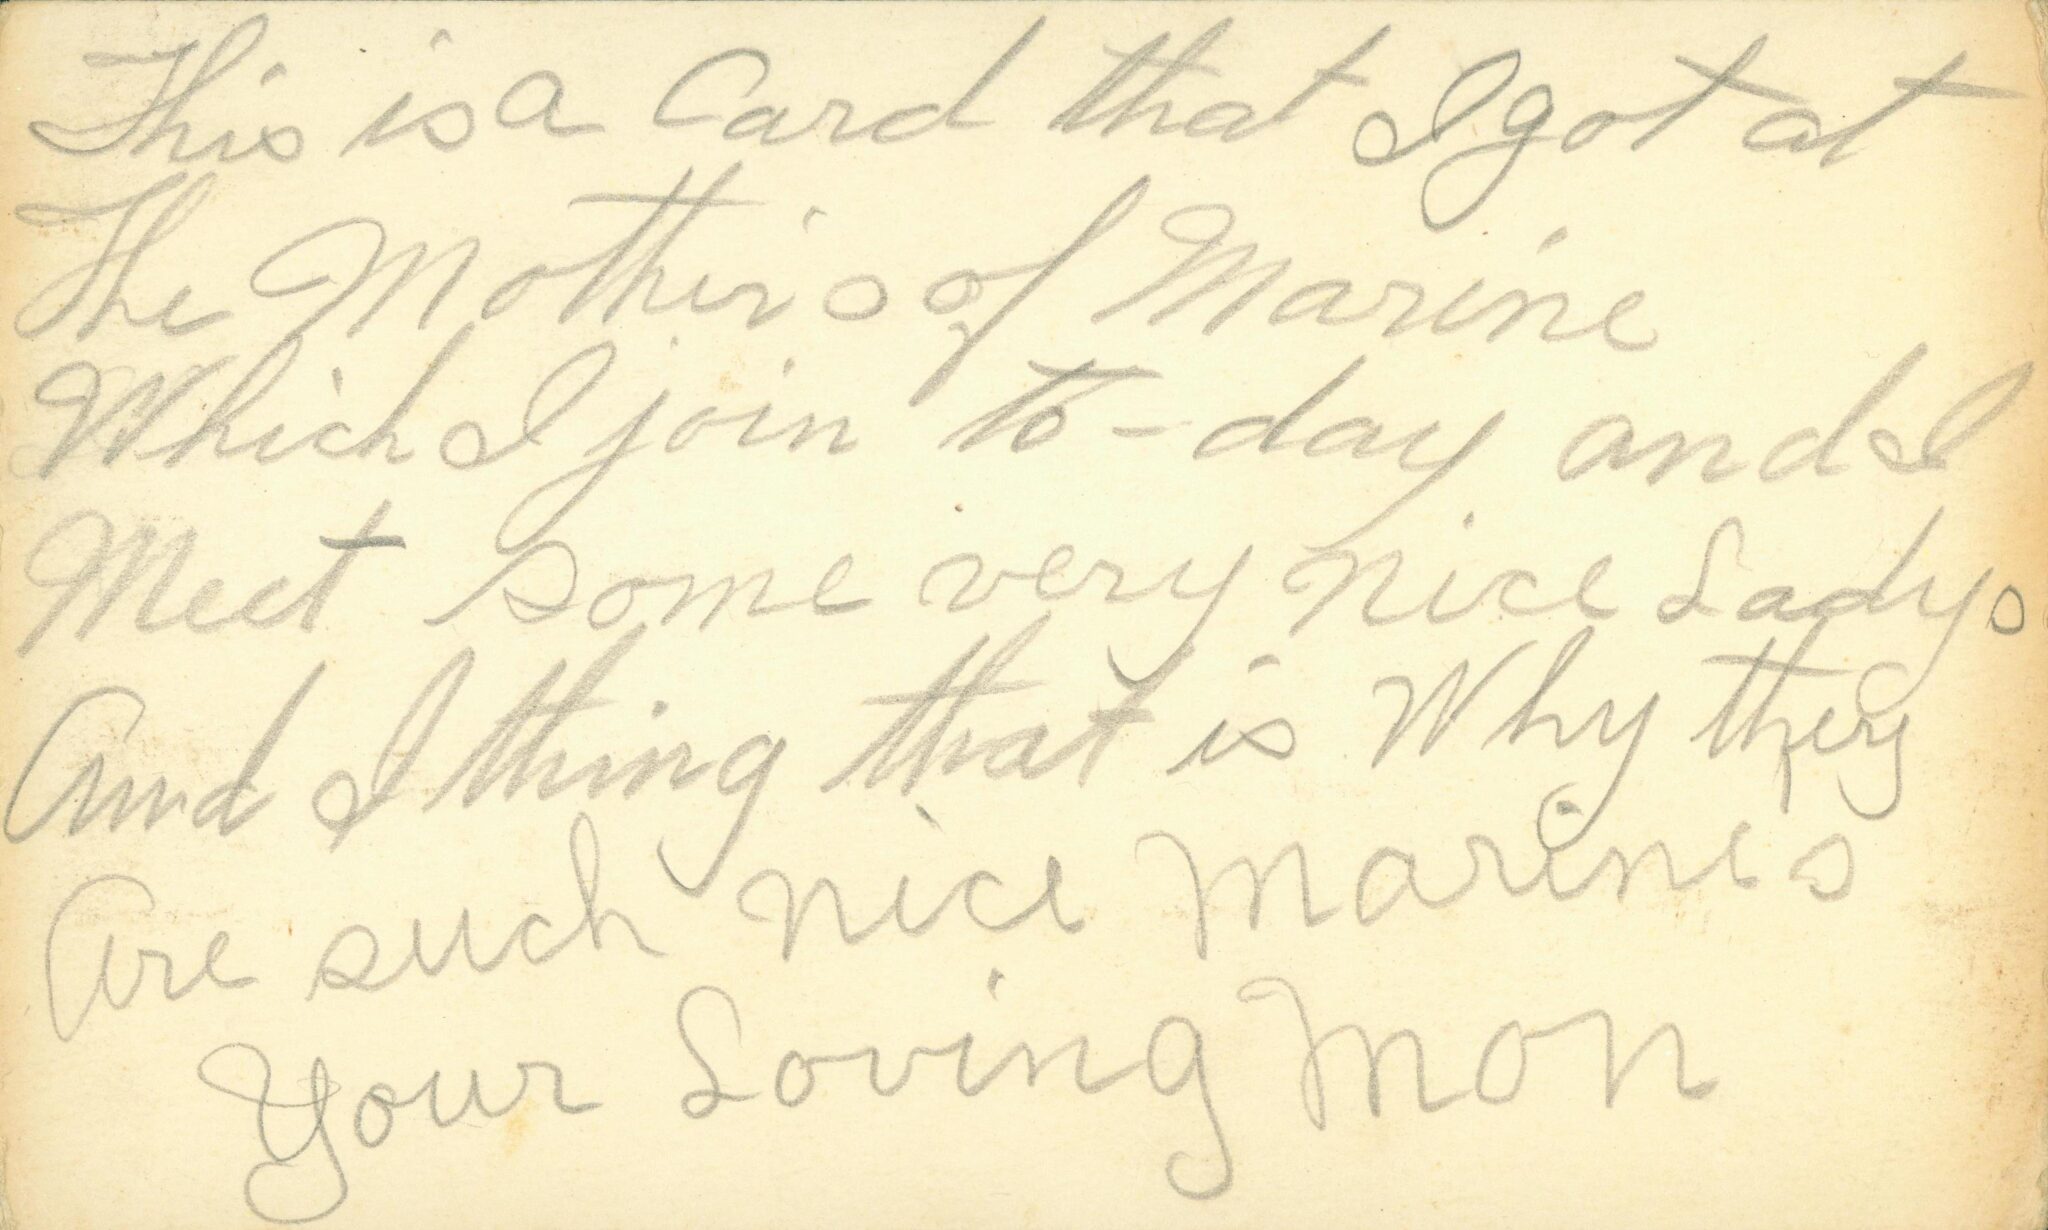 This is a Card that I got at
The Mothers of Marine
Which I join to-day and I
Meet some very nice Ladys
And I thing that is Why they
Are such nice Marines
Your Loving Mon